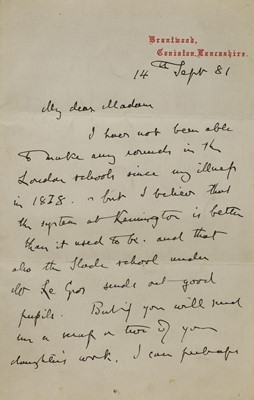 Brantwood,
Coniston, Lancashire.
14th Sept 81
My dear Madam
I have not been able
to make any rounds in the
London schools since my illness
in 1878. but I believe that
the system at Kennington is better
than it used to be. and that
also the Slade school under
Le Gros sends out good
pupils. But if you will send
me a scrap or two of your
daughter's work, I can perhaps